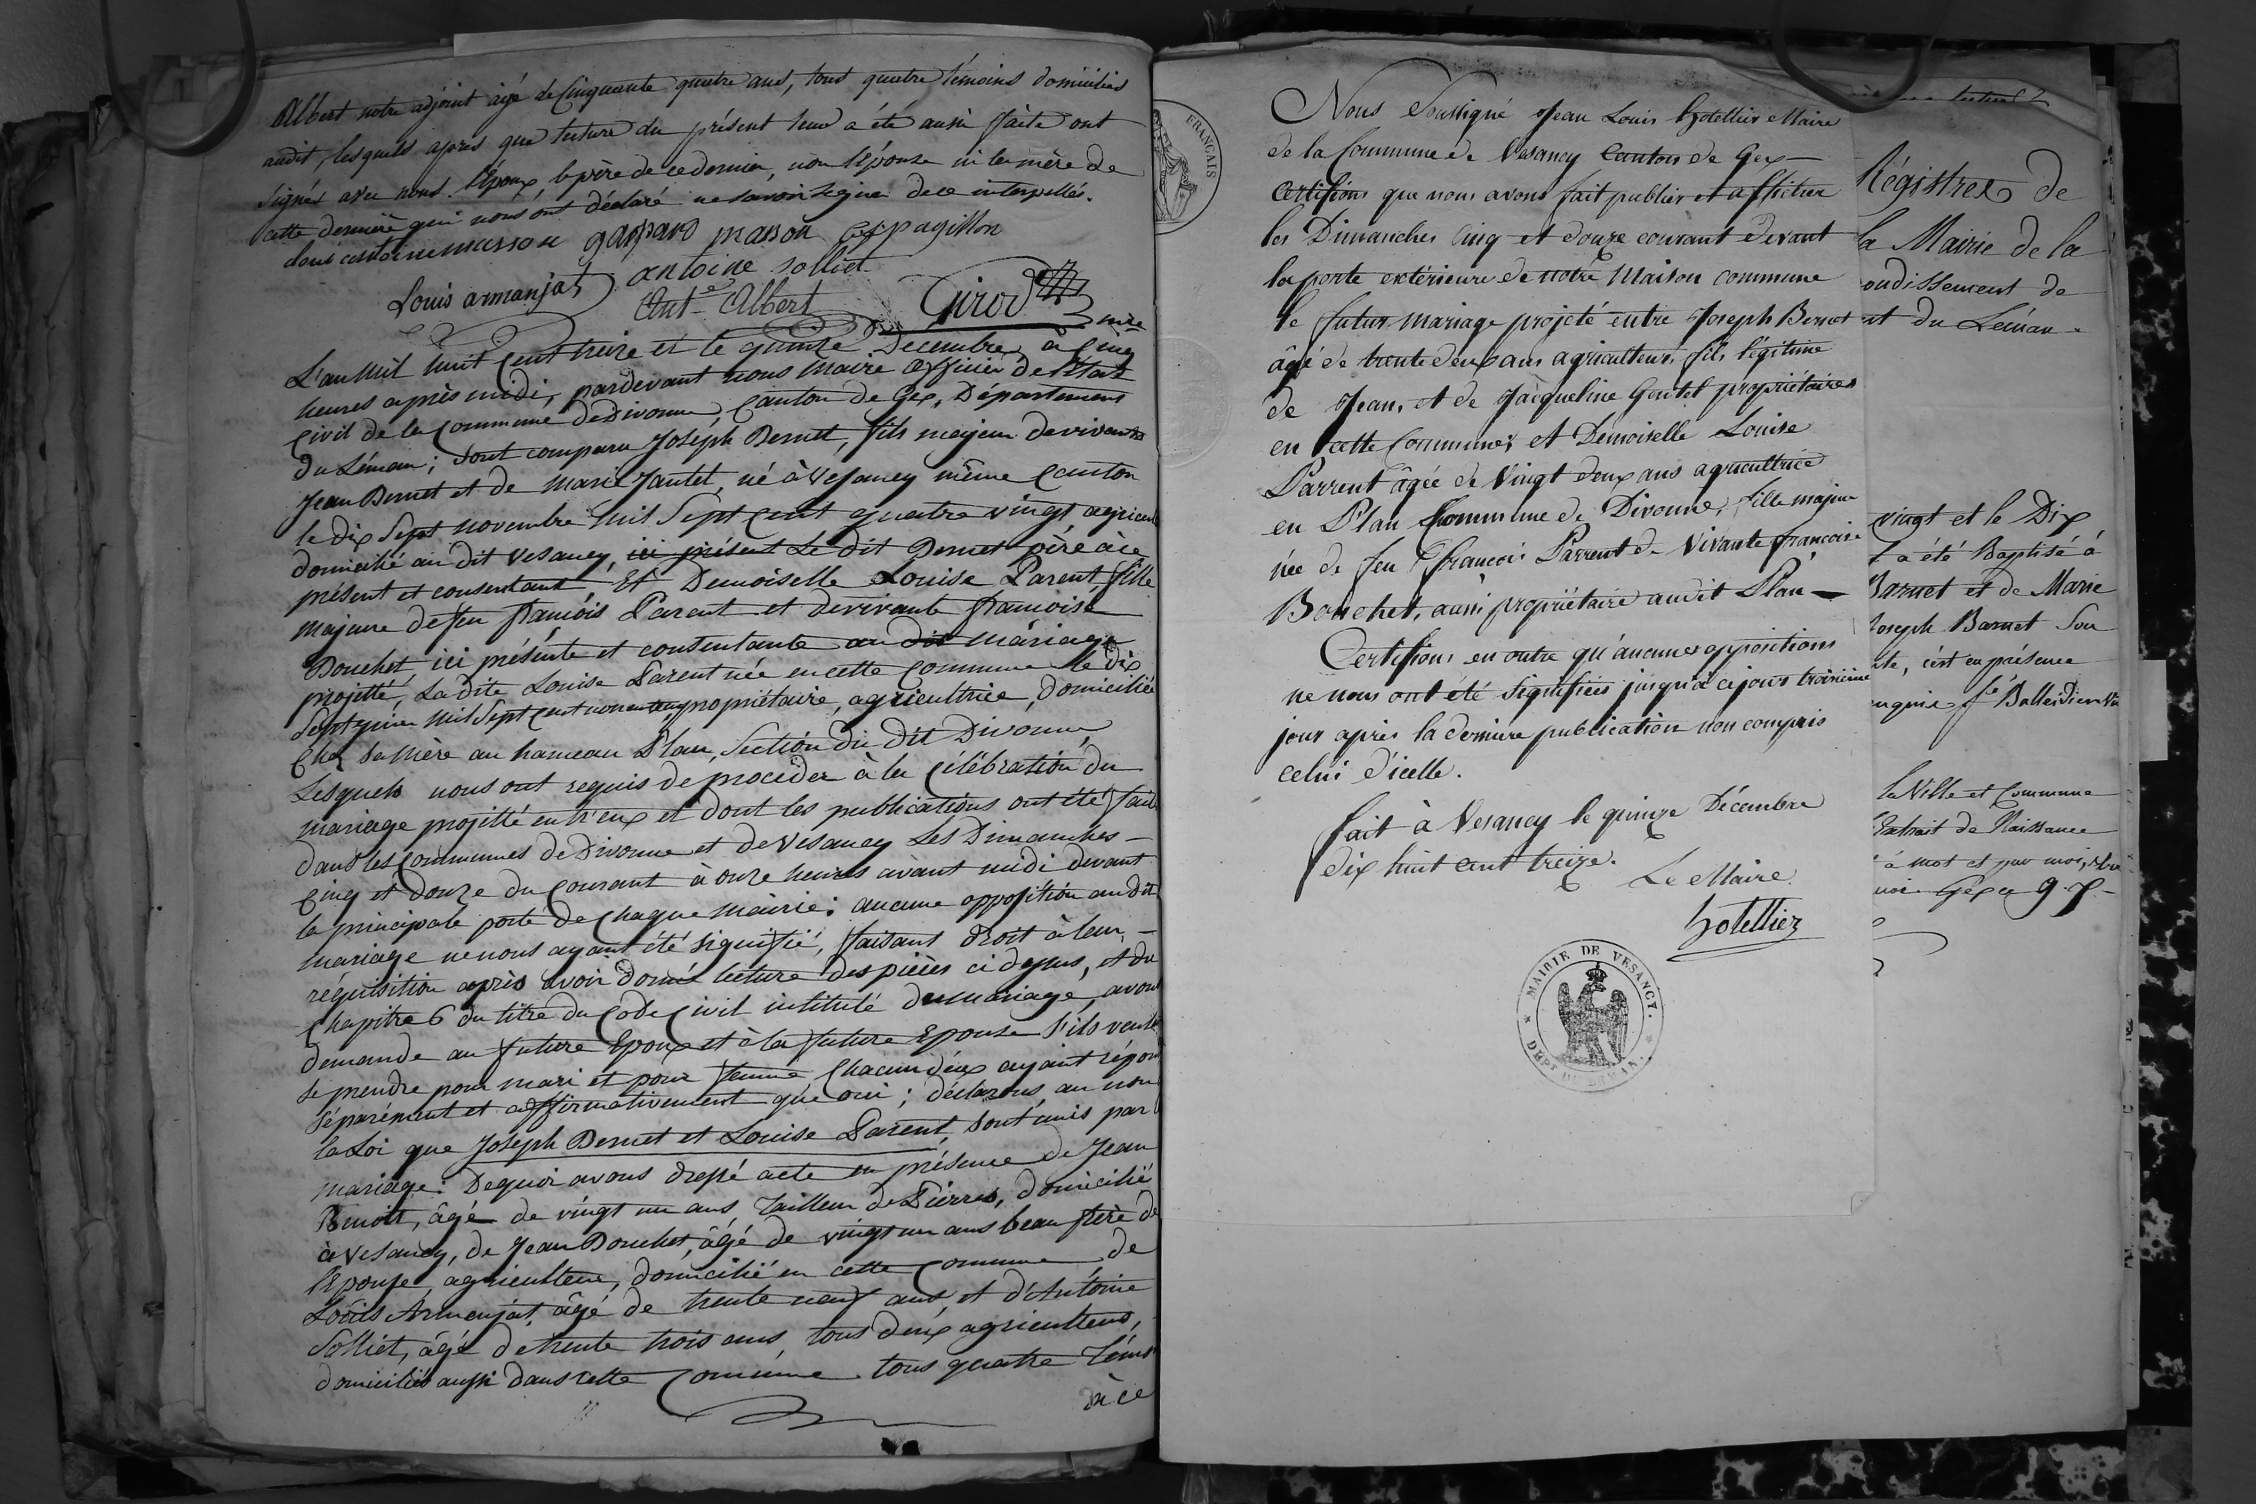 Albert notre adjoint âgé de Cinquante quatre ans, tous quatre témoins domiciliés
audit, lesquels apres que lecture du présent leur a été aussi faite ont
signés avec nous. l'Époux, le père de ce dernier, non l'épouse ni la mère de
cette dernière qui nous ont déclaré ne savoir signer de ce interpellés.
gaspard masson pagillon
Louis armanjat antoine solliet
Ant.e Albert Girod mre
L'an mil huit Cent treize et le quinze Decembre, à cinq
heures après midi, pardevant nous Maire Officier de l'Etat
Civil de la Commune de Divonne, Canton de Gex, Département
du Léman; sont comparu Joséph Bernet, fils majeur de vivants
Jean Bernet et de Marie Jantet, né à Vesancy même Canton
le dix Sept novembre mil Sept Cent quatre vingt, agricul
domicilié au dit Vesancy, ici présent Le dit Bernet père à ce
présent et consentant Et Demoiselle Louise Parent, fille
majeure de feu françois Parent et de vivante francoise
Bouchet ici présente et consentante au dit mariage
projetté, La dite Louise Parent née en cette Commune le dix
Sept mil Sept Cent propriétaire, agricultrice, domiciliée
Chez Sa Mère au hameau Plan, Section du dit Divonne,
Lesquels nous ont requis de proceder à la Célébration du
mariage projetté entr'eux et dont les publications ont été fait
dans les Communes de Divonne et de Vesancy Les Dimanches -
Cinq et douze du Courant à onze heures avant midi devant
la principale porte de Chaque Mairie; aucune opposition au dit
mariage ne nous ayant été signifié, faisant droit à leur -
réquisition après avoir donné lecture des pièces ci dessus, et du
Chapitre 6 du titre du Code Civil intitulé du Mariage, avons
demande au future Epoux et à la future Epouse S'ils veulent
Se prendre pour mari et pour femme Chacun d'eux ayant répon
Séparément et affirmativement que oui; déclarons au nom
la Loi que Joseph Bernet et Louise Parent, sont unis par
mariage. De quoi avons dressé acte en présence de Jean
Benoit, âgé de vingt un ans Tailleur de Pierres, domicilié
à Vesancy, de Jean Bouchet, âgé de vingt un ans beau frère de
l'Epouse agriculteur, domicilié en cette Commune de
Louis Armenjat, âgé de trente neuf ans, et d'Antoine
Solliet, âgé de trente trois ans, tous deux agriculteurs,
domiciliés aussi dans cette Commune tous quatre Témo
à ce
FRANÇAIS
Nous Soussigné Jean Louis hotellier Maire
de la Commune de Vesancy Canton de Gex -
Certifions que nous avons fait publier et afficher
les Dimanches Cinq et douze courant devant
la porte extérieure de notre Maison commune
le futur mariage projeté entre Joseph Bernet
âgé de trente deux ans agriculteur, fils légitime
de Jean, et de Jacqueline Goutet propriétaires
en cette Commune; et Demoiselle Louise
Parrent âgée de Vingt deux ans agricultrice
en Plan Commune de Divonne, fille majeure
née de feu françois Parrent de Vivante francoise
Bouchet, aussi propriétaire audit Plan -
Certifions en outre qu'aucunes oppositions
ne nous ont été signifiées jusqu'à ce jour troisieme
jour après la derniere publication non compris
celui d'icelle.
fait à Vesancy le quinze Décembre
dix huit cent treize.
Le Maire
hotellier
MAIRIE DE VESANCY.
DEPT DU LEMAN.
Régistres de
la Mairie de la
ondissement de
nt du Léman.
vingt et le Dix
a été Baptisé à
Barnet et de Marie
Joseph Barnet Son
c'est en présence
la Ville et Commune
Extrait de Naissance
à mot et par moi,
Gex